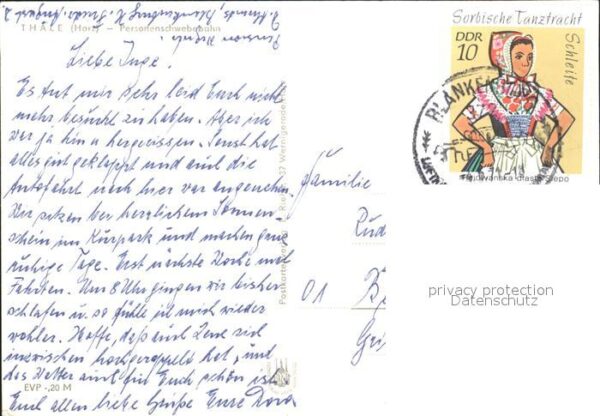 THALE (Harz) - Personenschwebebahn
Liebe Inge!
Es tut mir sehr leid Euch nicht
mehr besucht zu haben. Aber ich
war ja hin u hergerissen. Sonst hat
alles gut geklappt und auch die
Autofahrt nach hier war angenehm.
Wir sitzen bei herrlichem Sonnen-
schein im Kurpark und machen ganz
ruhige Tage. Erst nächste Woche mal
Fahrten. Um 8 Uhr gingen wir bisher
schlafen u. so fühle ich mich wieder
wohler. Hoffe, daß auch Lene sich
inzwischen hochgerappelt hat, und
das Wetter auch für Euch schön ist
Euch allen liebe Grüße Eure Dora
EVP -,20 M
37 Wernigerode
Familie
Rud
01
Sorbische Tanztracht
Schleife
DDR
10
BLANKENBURG
privacy protection
Datenschutz